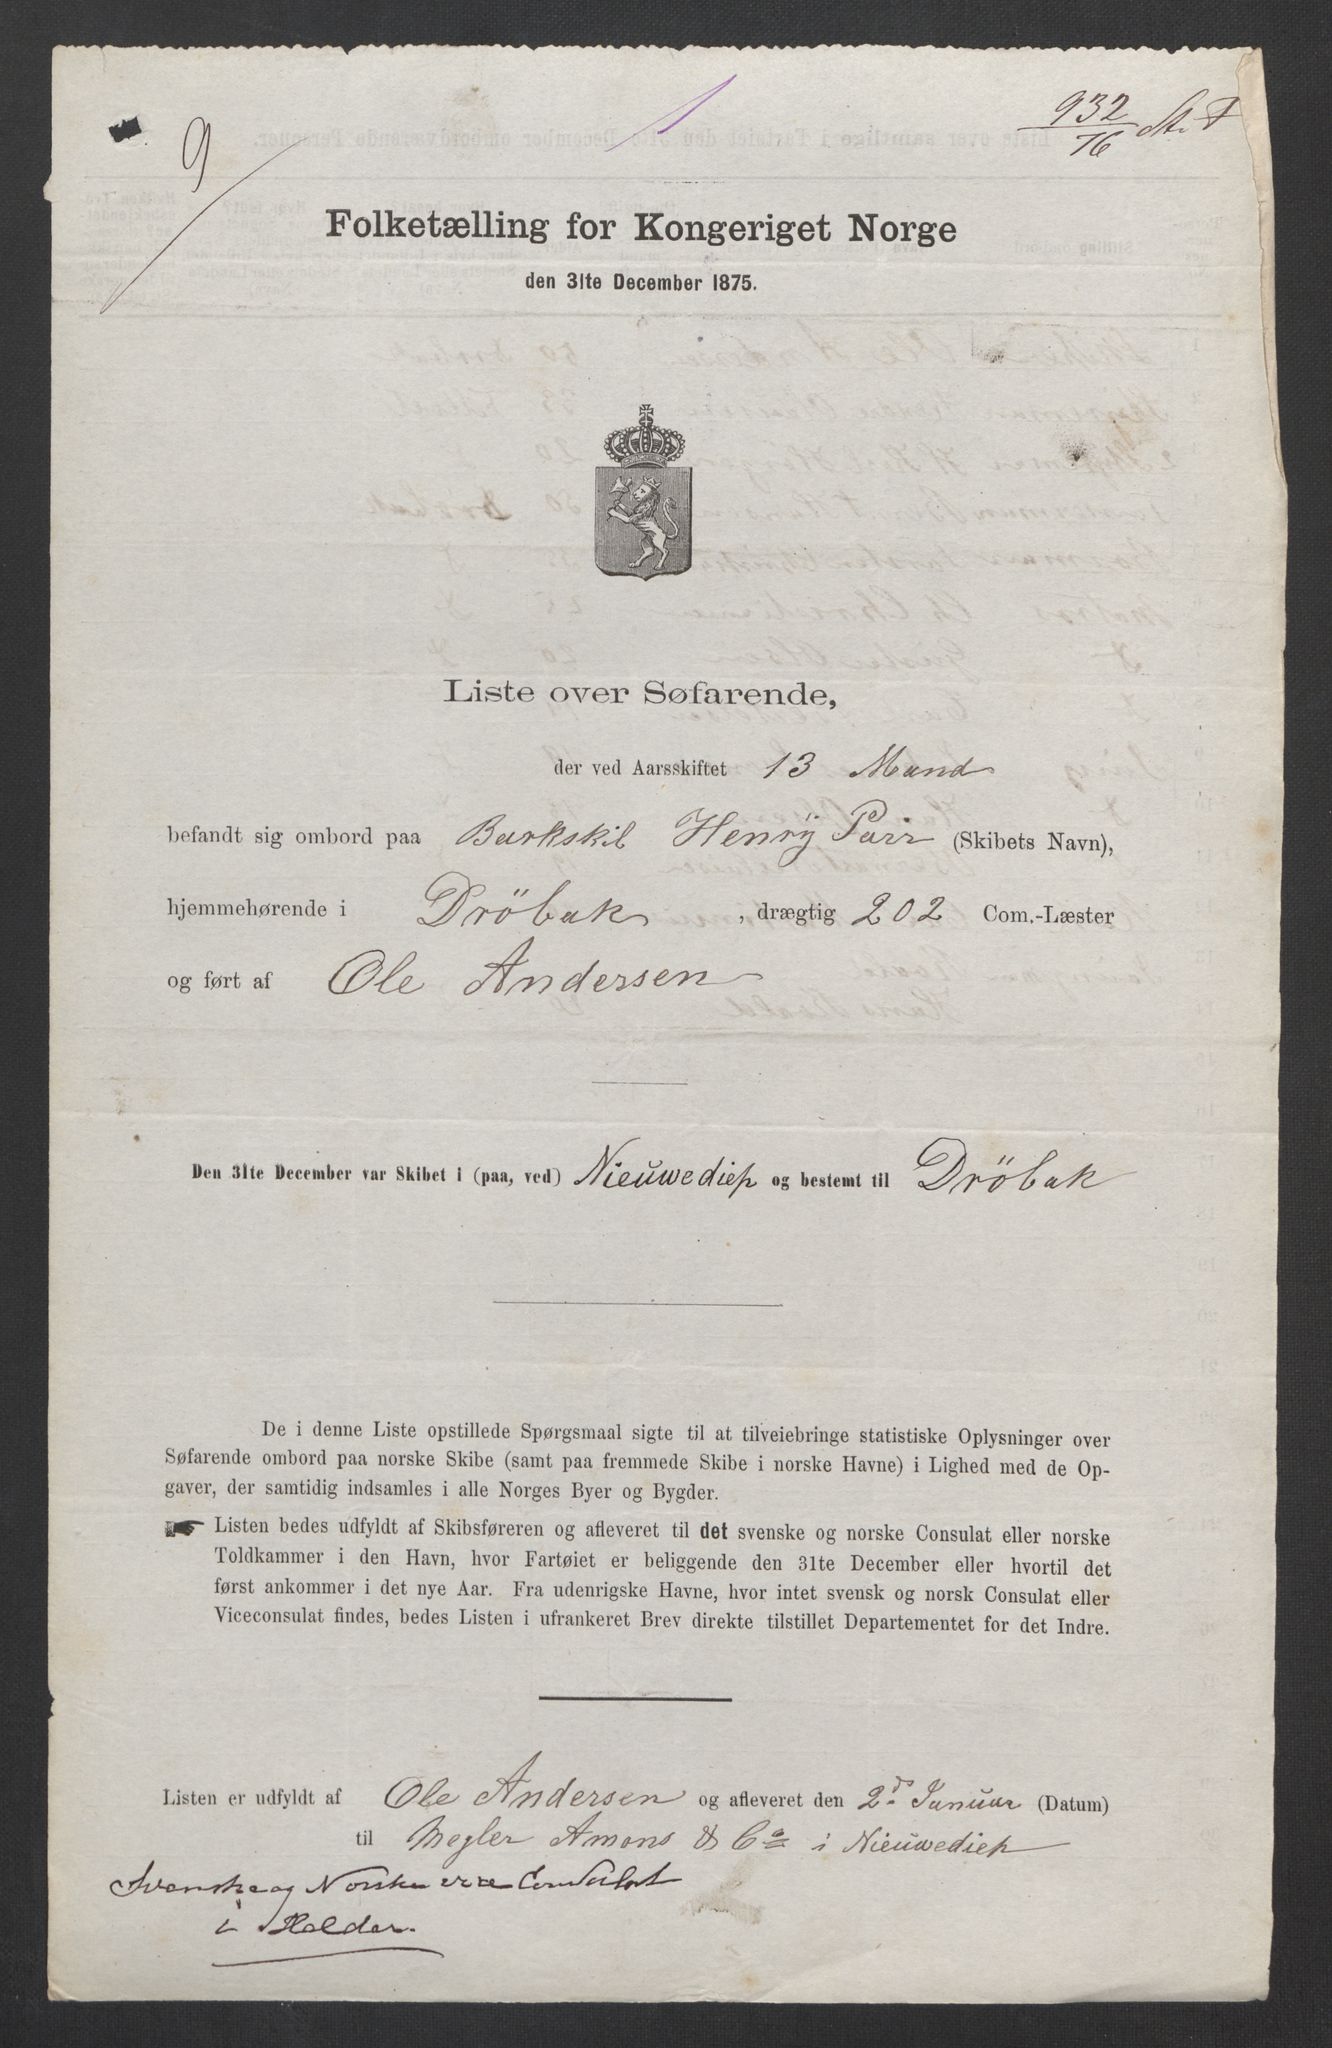 9
1
932
76
Folketælling for Kongeriget Norge
den 31te December 1875.
Liste over Søfarende,
der ved Aarsskiftet 13 Mand
befandt sig ombord paa Barkskib Henrÿ Parr (Skibets Navn),
hjemmehørende i Dröbak, drægtig 202 Com.-Læster
og ført af Ole Andersen
Den 31te December var Skibet i (paa, ved) Nieuwediep og bestemt til Dröbak
De i denne Liste opstillede Spørgsmaal sigte til at tilveiebringe statistiske Oplysninger over
Søfarende ombord paa norske Skibe (samt paa fremmede Skibe i norske Havne) i Lighed med de Op-
gaver, der samtidig indsamles i alle Norges Byer og Bygder.
☛ Listen bedes udfyldt af Skibsføreren og afleveret til det svenske og norske Consulat eller norske
Toldkammer i den Havn, hvor Fartøiet er beliggende den 31te December eller hvortil det
først ankommer i det nye Aar. Fra udenrigske Havne, hvor intet svensk og norsk Consulat eller
Viceconsulat findes, bedes Listen i ufrankeret Brev direkte tilstillet Departementet for det Indre.
Listen er udfyldt af Ole Andersen og afleveret den 2d. Januar (Datum)
til Megler Amons & Co i Nieuwediep
Svenske og Norske vice Consulat
i Helder.